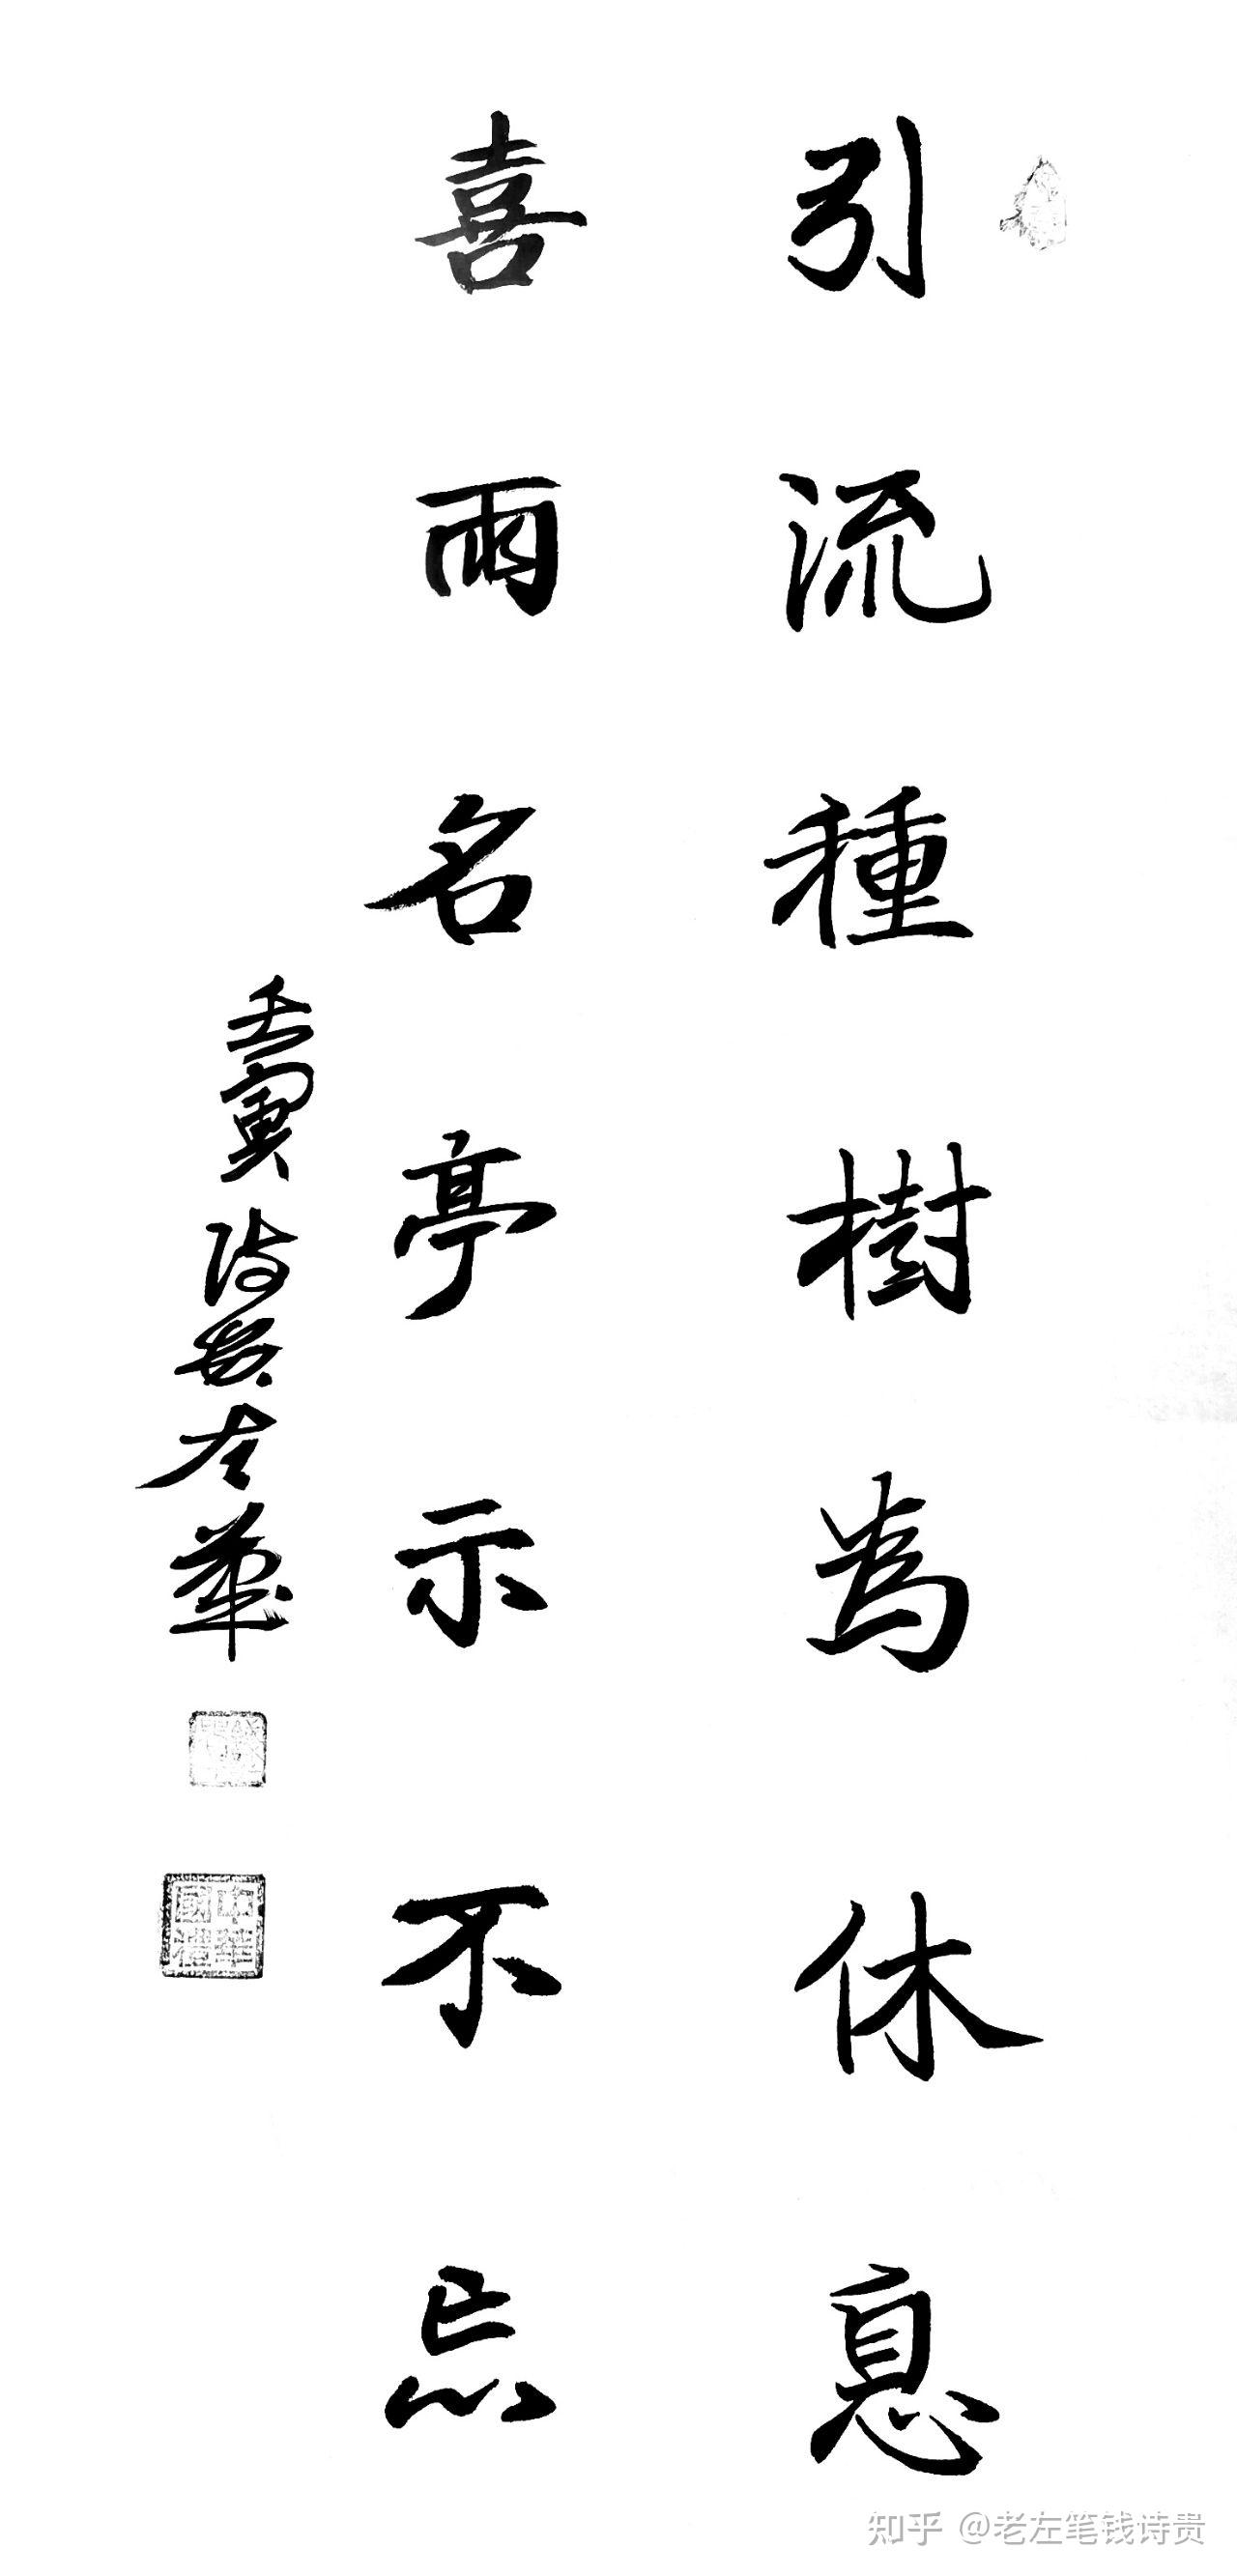 引流種樹為休息
喜雨名亭示不忘
壬寅詩安左華
知乎 @老左笔钱诗贵